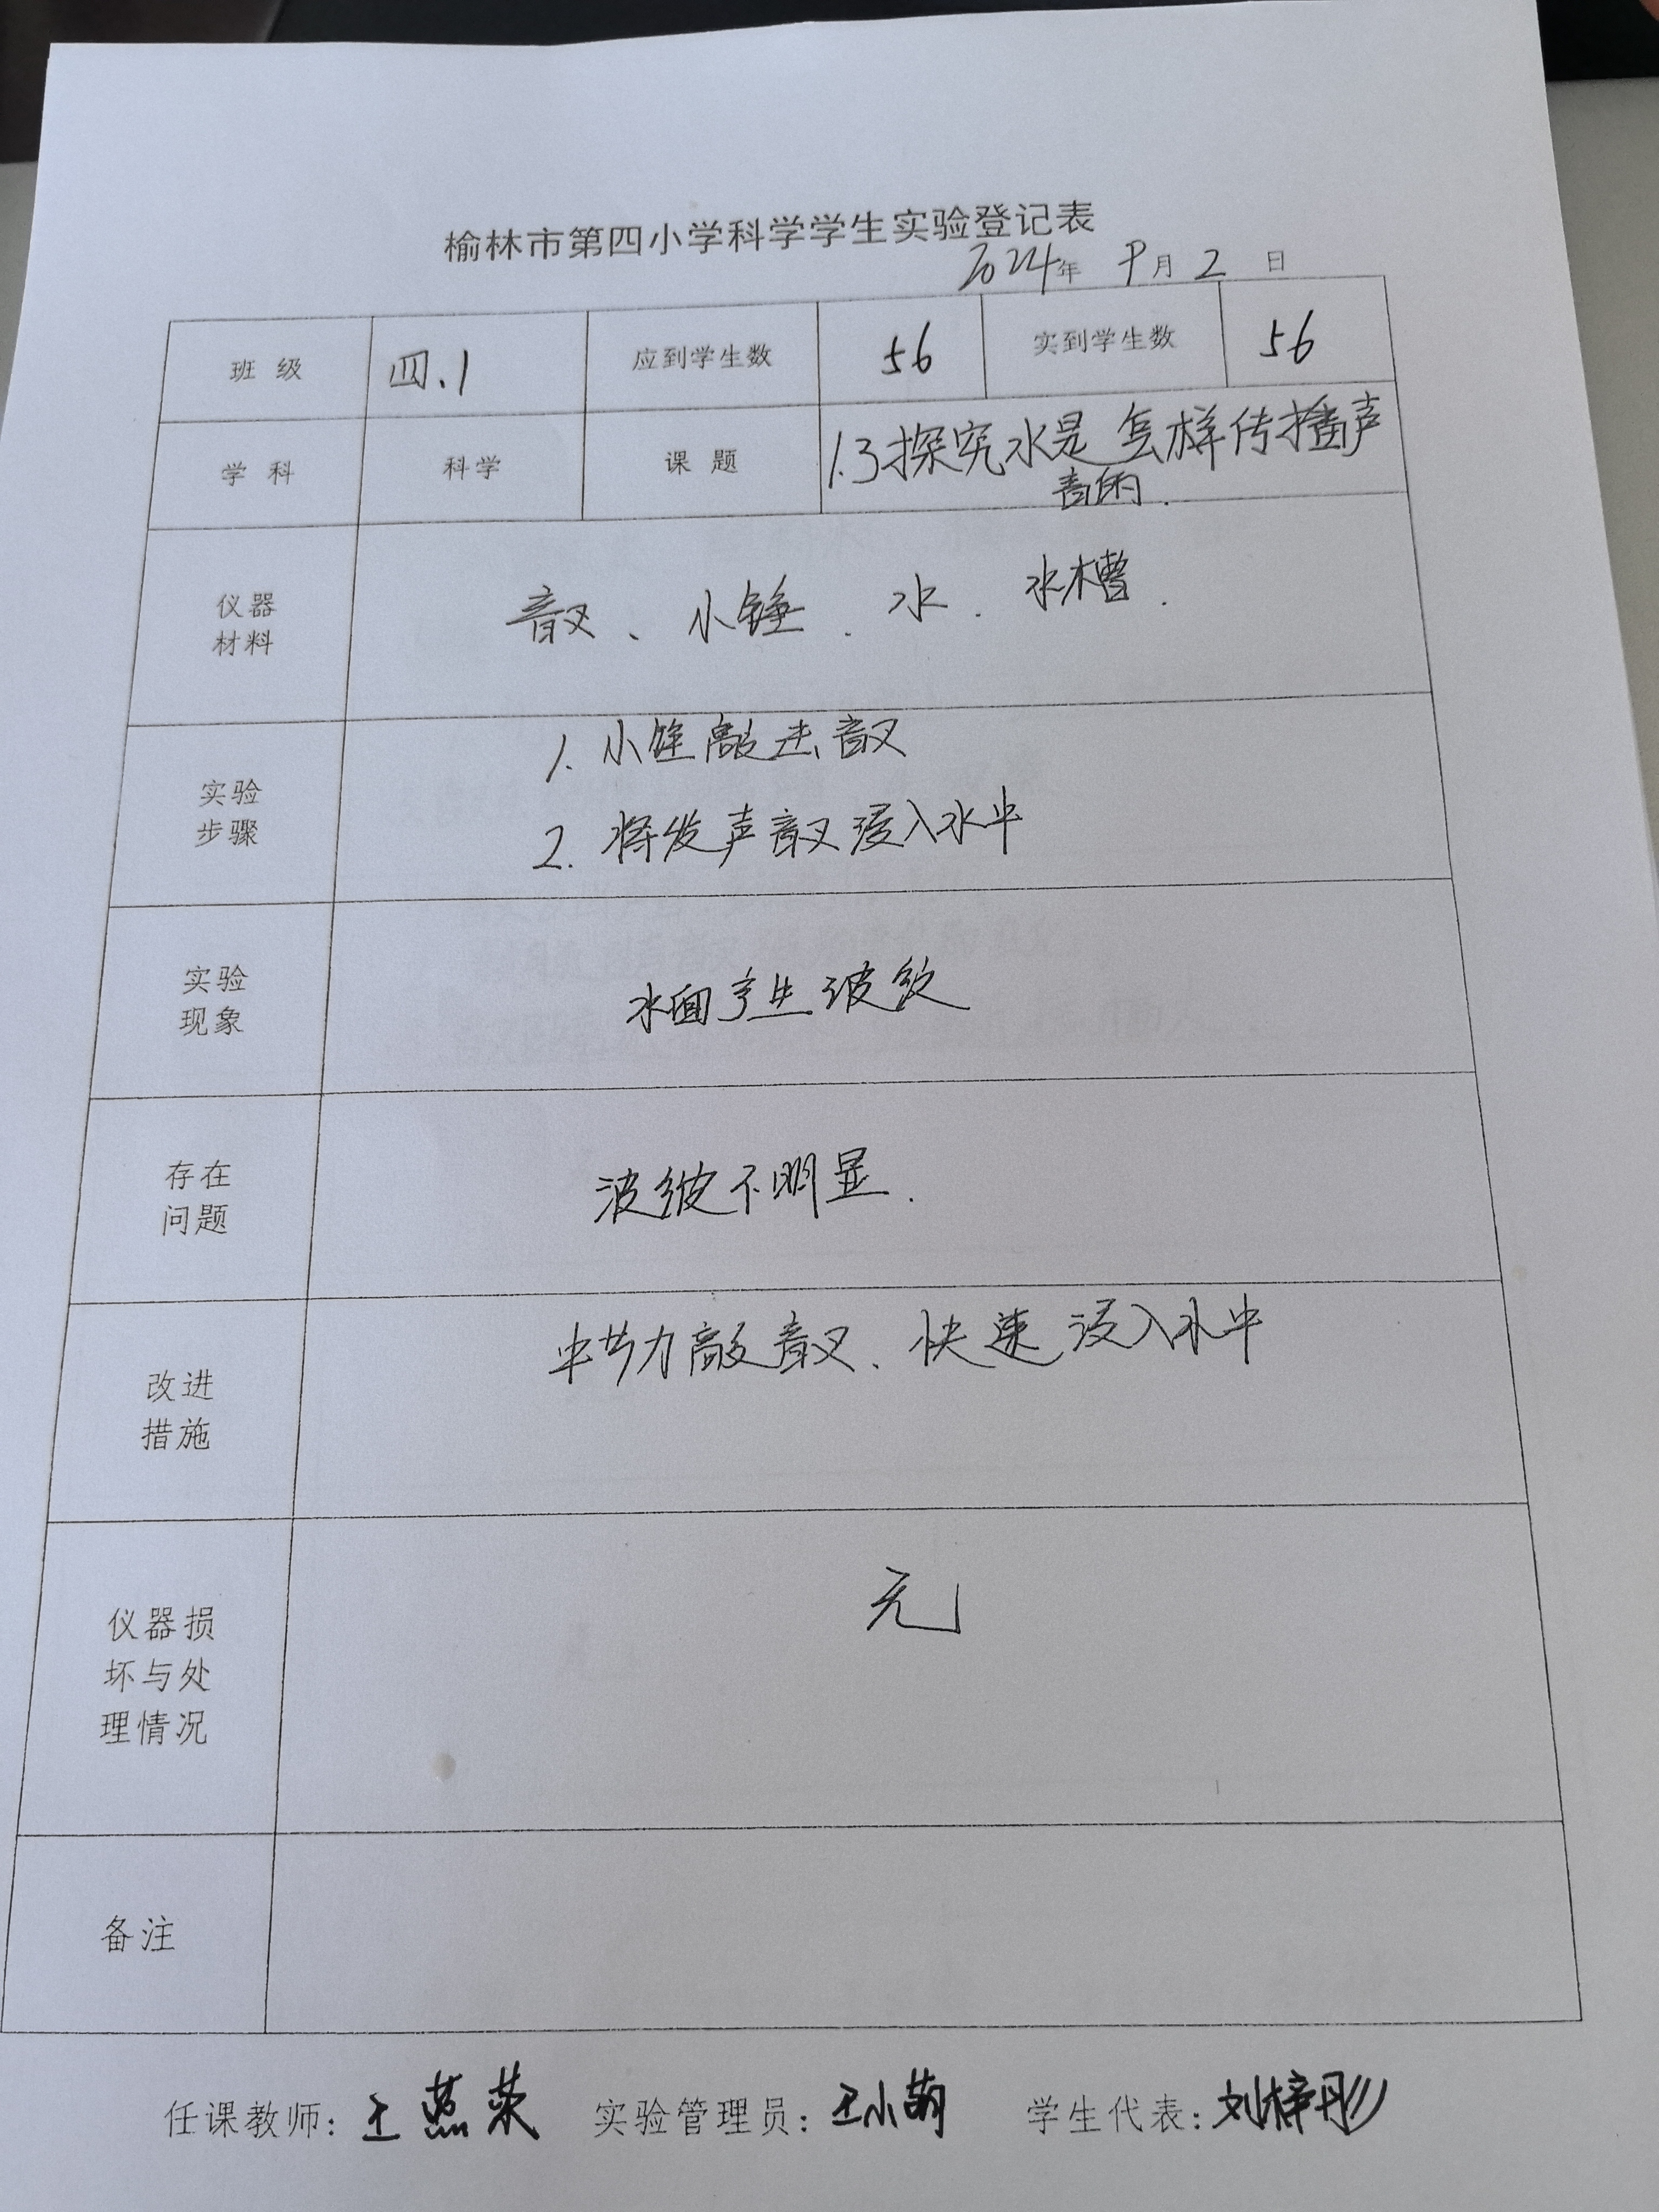 榆林市第四小学科学学生实验登记表
2024年 9月 2 日
班 级 四.1 应到学生数 56 实到学生数 56
学 科 科学 课 题 1.3探究水是怎样传播声
音的.
仪器
材料
音叉、小锤、水、水槽.
实验
步骤
1. 小锤敲击音叉
2. 将发声音叉浸入水中
实验
现象
水面产生波纹
存在
问题
波纹不明显.
改进
措施
力敲音叉、快速浸入水中
仪器损
坏与处
理情况
无
备注
任课教师: 王燕荣 实验管理员: 王小萌 学生代表: 刘梓彤